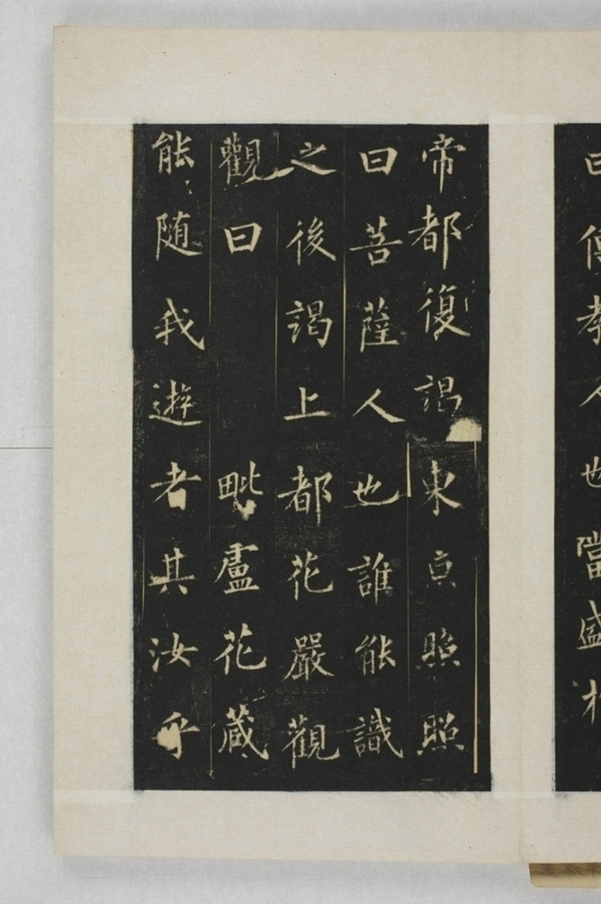 曰傳教人也當盛於
帝都復謁東京照照
曰菩薩人也誰能識
之後謁上都花嚴觀
觀曰毗盧花藏
能随我遊者其汝乎